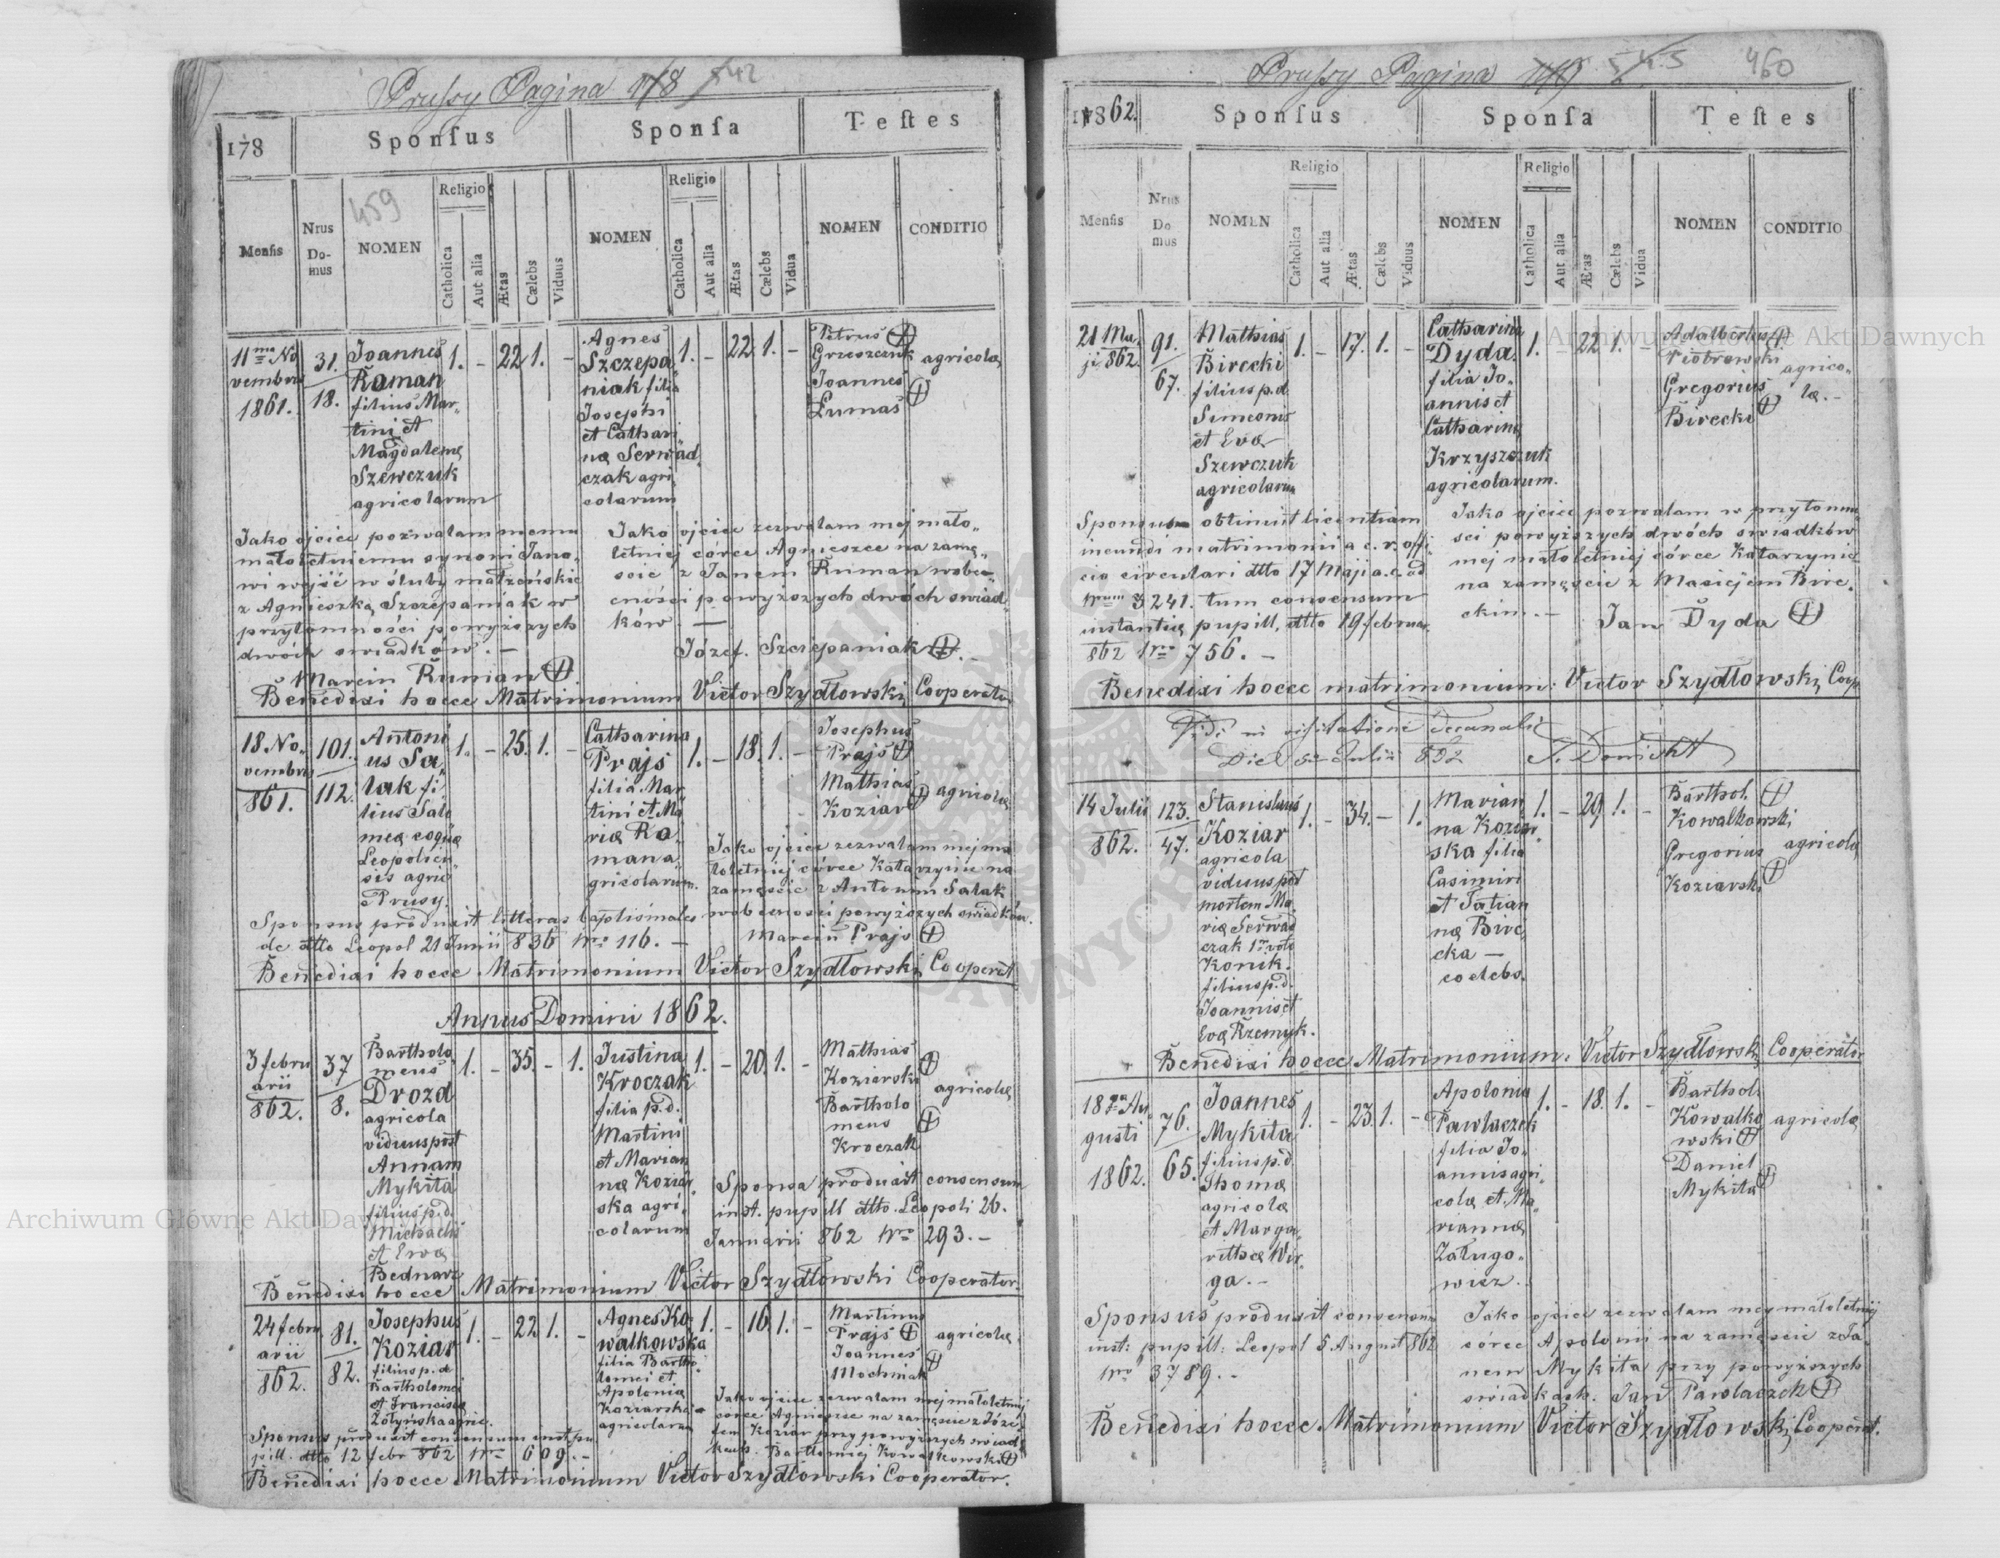 Prussy Pagina 178 542
178
Sponsus
Sponsa
Testes
Mensis
Nrus Domus
459
NOMEN
Religio
Catholica
Aut alia
Ætas
Cælebs
Viduus
NOMEN
Religio
Catholica
Aut alia
Ætas
Cælebs
Vidua
NOMEN
CONDITIO
11ma No
vembris
1861.
31.
18.
Joannes
Ruman
filius Mar-
tini et
Magdalenæ
Szewczuk
agricolarum
1. - 22 1. -
Agnes
Szczepa
niak filia
Josephi
et Cathari
næ Serwad
czak agri
colarum
1. - 22 1. -
Petrus
Grzeszczuk
Joannes
Lumas
agricolæ
Jako ojciec pozwalam memu
małoletniemu synowi Jano-
wi wyjść w śluby małżeńskie
z Agnieszką Szczepaniak w
przytomności powyższych
dwóch swiadków. —
Marcin Ruman
Jako ojciec zezwalam mej mało-
letniej córce Agnieszce na zamę-
scie z Janem Ruman wobec-
cności powyższych dwoch swiad-
ków —
Józef Szczepaniak
Benedixi hocce Matrimonium Victor Szydłowski Cooperator
18. No-
vembris
861.
101.
112.
Antoni
us Sa
lak fi
lius Salo
meæ coquæ
Leopolien
sis agric
Prusy.
1. - 25. 1. -
Catharina
Prajs
filia Mar
tini et Ma
riæ Ro
mana
gricolarum.
1. - 18. 1. -
Josephus
Prajs
Mathias
Koziar
agricolæ
Jako ojciec zezwalam mej ma
łoletniej córce Katarzynie na
zamęscie z Antonim Salak
wobecności powyższych swiadków
Marcin Prajs
Sponsus produxit litteras baptismales
de dtto Leopol 21 Junii 836 Nro 116. —
Benedixi hocce Matrimonium Victor Szydłowski Cooperat
Annus Domini 1862.
3 febru
arii
862.
37
8.
Bartholo
meus
Drozd
agricola
viduus post
Annam
Mykita
filius p.d.
Michaelis
et Evæ
Bednarz
1. - 35. - 1.
Justina
Kroczak
filia p.d.
Martini
et Marian
næ Koziar
ska agri
colarum
1. - 20. 1. -
Mathias
Koziarski
Bartholo
meus
Kroczak
agricolæ
Sponsa produxit consensum
inst. pupill dtto Leopoli 26.
Januarii 862 Nro 293. —
Benedixi hocce Matrimonium Victor Szydłowski Cooperator.
24 febru
arii
862.
81.
82.
Josephus
Koziar
filius p. d.
Bartholomei
et Franciscæ
Żołyńska agric.
1. - 22 1. -
Agnes Ko
walkowska
filia Bartho
lomei et
Apoloniæ
Koziarska
agricolarum
1. - 16 1. -
Martinus
Prajs
Joannes
Mochniak
agricolæ
Jako ojciec zezwalam mej małoletniej
córce Agnieszce na zamęscie z Józe
fem Koziar przy powyższych swiad
kach. Bartłomiej Kowalkowski
Sponsus produxit consensum inst pu
pill. dtto 12 febr 862 Nro 609. —
Benedixi hocce Matrimonium Victor Szydłowski Cooperator.
Prussy Pagina 179 543 460
1862.
Sponsus
Sponsa
Testes
Mensis
Nrus Domus
NOMEN
Religio
Catholica
Aut alia
Ætas
Cælebs
Viduus
NOMEN
Religio
Catholica
Aut alia
Ætas
Cælebs
Vidua
NOMEN
CONDITIO
21 Ma-
ji 862.
91.
67.
Mathias
Birecki
filius p.d.
Simeonis
et Evæ
Szewczuk
agricolarum
1. - 17. 1. -
Catharina
Dyda
filia Jo-
annis et
Catharinæ
Krzyszczuk
agricolarum.
1. - 22 1. -
Adalbertus
Piotrowski
Gregorius
Birecki
agrico-
læ. -
Sponsus obtinuit licentiam
ineundi matrimonii a c. r. offi
cio circulari dtto 17 Maji a.c. ad
Nrum 3241. tum consensum
instantiæ pupill. dtto 19 februar.
862 Nro 756. —
Jako ojciec pozwalam w przytomno
sci powyższych dwóch swiadków
mej małoletniej córce Katarzynie
na zamęscie z Maciejem Birec
ckim. —
Jan Dyda
Benedixi hocce matrimonium: Victor Szydłowski, Coop
Vidi in visitatione decanali
Die 5 Julii 862
14 Julii
862.
123.
47.
Stanislaus
Koziar
agricola
viduus post
mortem Ma
riæ Serwad
czak 1mo voto
Konik.
filius p.d.
Joannis et
Evæ Rzemyk.
1. - 34. - 1.
Marian
na Koziar
ska filia
Casimiri
et Tatian
næ Birec
cka —
coelebs.
1. - 29 1. -
Barthol.
Kowalkowski
Gregorius
Koziarski
agricolæ
Benedixi hocce Matrimonium. Victor Szydłowski Cooperator
18va Au
gusti
1862.
76.
65.
Joannes
Mykita
filius p.d.
Thomæ
agricolæ
et Marga
rethæ Wir
ga. -
1. - 23. 1. -
Apolonia
Pawlaczek
filia Jo-
annis agri
colæ et Ma
riannæ
Załugo-
wicz.
1. - 18 1. -
Barthol.
Kowalko
wski
Daniel
Mykita
agricolæ
Sponsus produxit consensum
inst: pupill: Leopol 5 August 862
Nro 3789. -
Jako ojciec zezwalam mey małoletniej
córce Apolonii na zamęscie z Ja-
nem Mykita przy powyższych
swiadkach. Jan Pawlaczek
Benedixi hocce Matrimonium Victor Szydłowski, Cooperat.
Archiwum Główne Akt Dawnych
Archiwum Główne Akt Dawnych